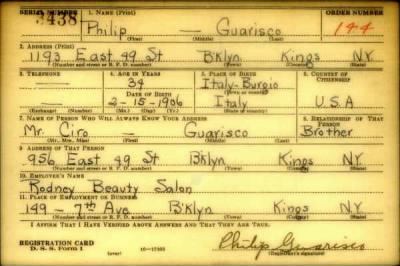 SERIAL NUMBER 1. NAME (Print) ORDER NUMBER
3438 Philip — Guarisco 144
(First) (Middle) (Last)
2. ADDRESS (Print)
1193 East 49 St B'klyn Kings N.Y.
(Number and street or R. F. D. number) (Town) (County) (State)
3. TELEPHONE 4. AGE IN YEARS 5. PLACE OF BIRTH 6. COUNTRY OF CITIZENSHIP
— 34 Italy-Burgio
DATE OF BIRTH (Town or county)
— 2-15-1906 Italy U.S.A
(Exchange) (Number) (Mo.) (Day) (Yr.) (State or country)
7. NAME OF PERSON WHO WILL ALWAYS KNOW YOUR ADDRESS 8. RELATIONSHIP OF THAT PERSON
Mr. Ciro — Guarisco Brother
(Mr., Mrs., Miss) (First) (Middle) (Last)
9. ADDRESS OF THAT PERSON
956 East 49 St B'klyn Kings N.Y.
(Number and street or R. F. D. number) (Town) (County) (State)
10. EMPLOYER'S NAME
Rodney Beauty Salon
11. PLACE OF EMPLOYMENT OR BUSINESS
149 - 7th Ave B'klyn Kings N.Y.
(Number and street or R. F. D. number) (Town) (County) (State)
I AFFIRM THAT I HAVE VERIFIED ABOVE ANSWERS AND THAT THEY ARE TRUE.
REGISTRATION CARD
D. S. S. Form 1 (over) Philip Guarisco
(Registrant's signature)